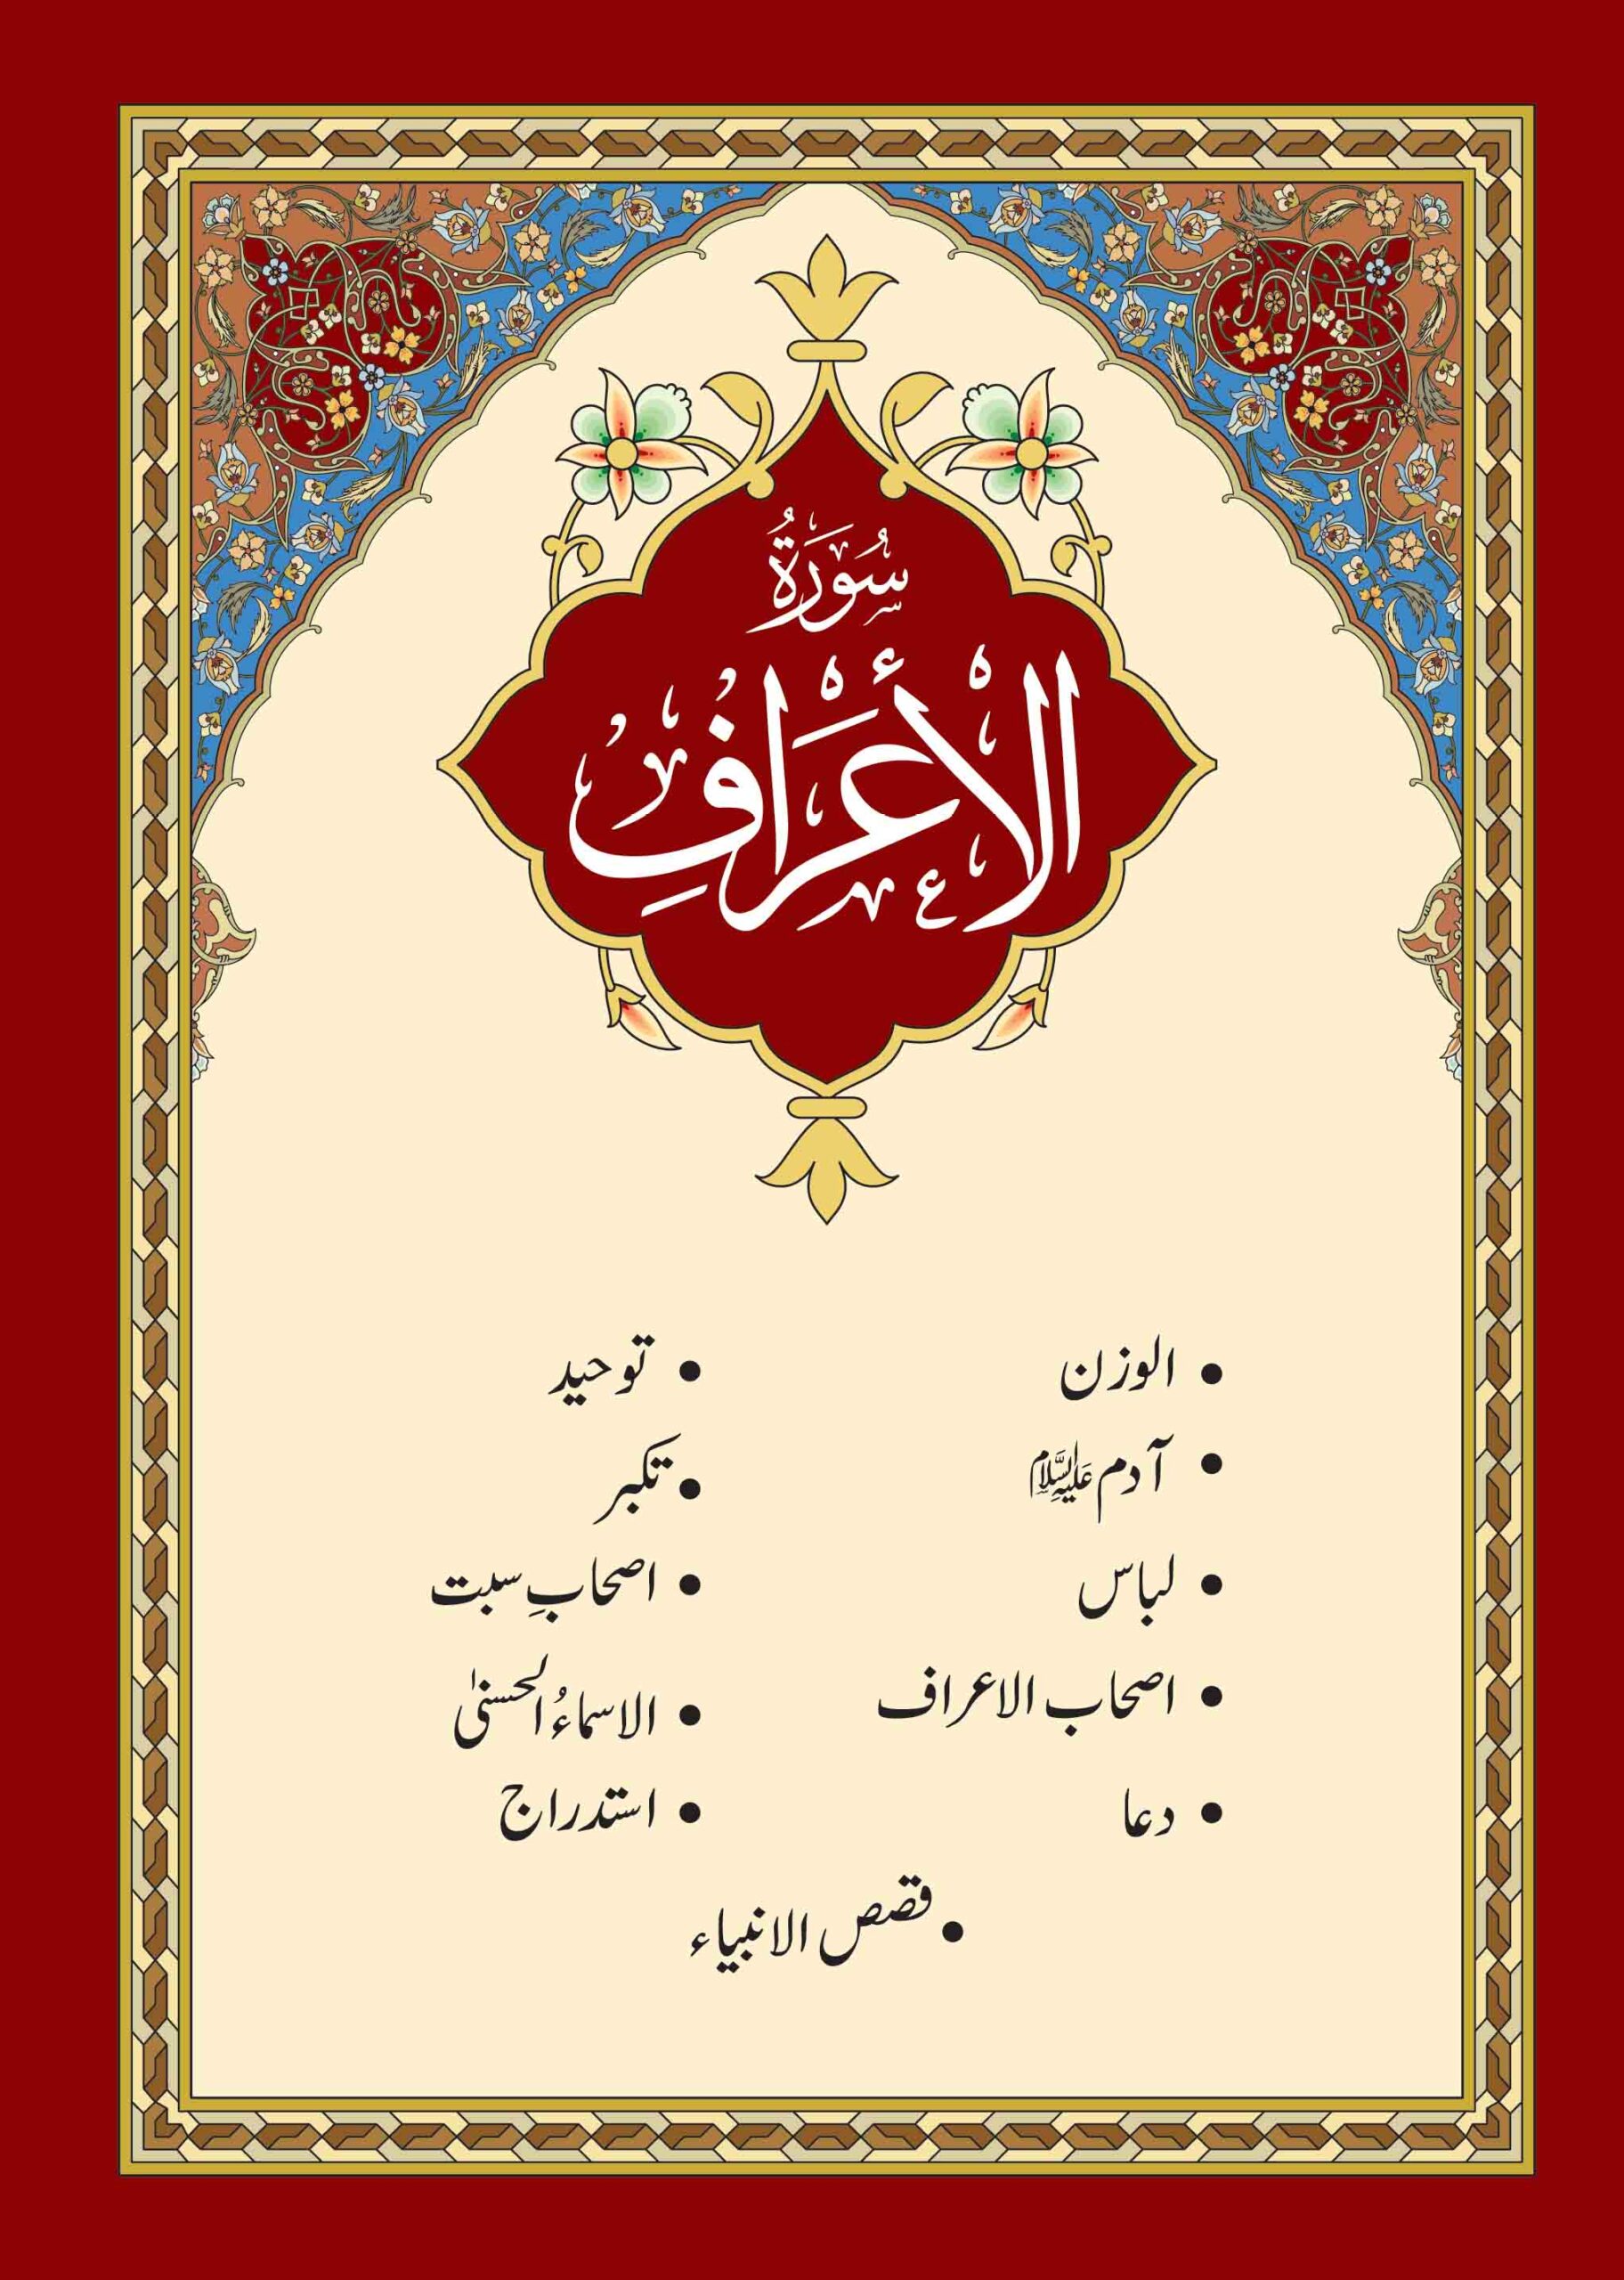 سُورَةُ
الْأَعْرَافِ
• الوزن
• توحید
• آدم علیہ السلام
• تکبر
• لباس
• اصحابِ سبت
• اصحاب الاعراف
• الاسماءُ الحسنیٰ
• دعا
• استدراج
• قصص الانبیاء